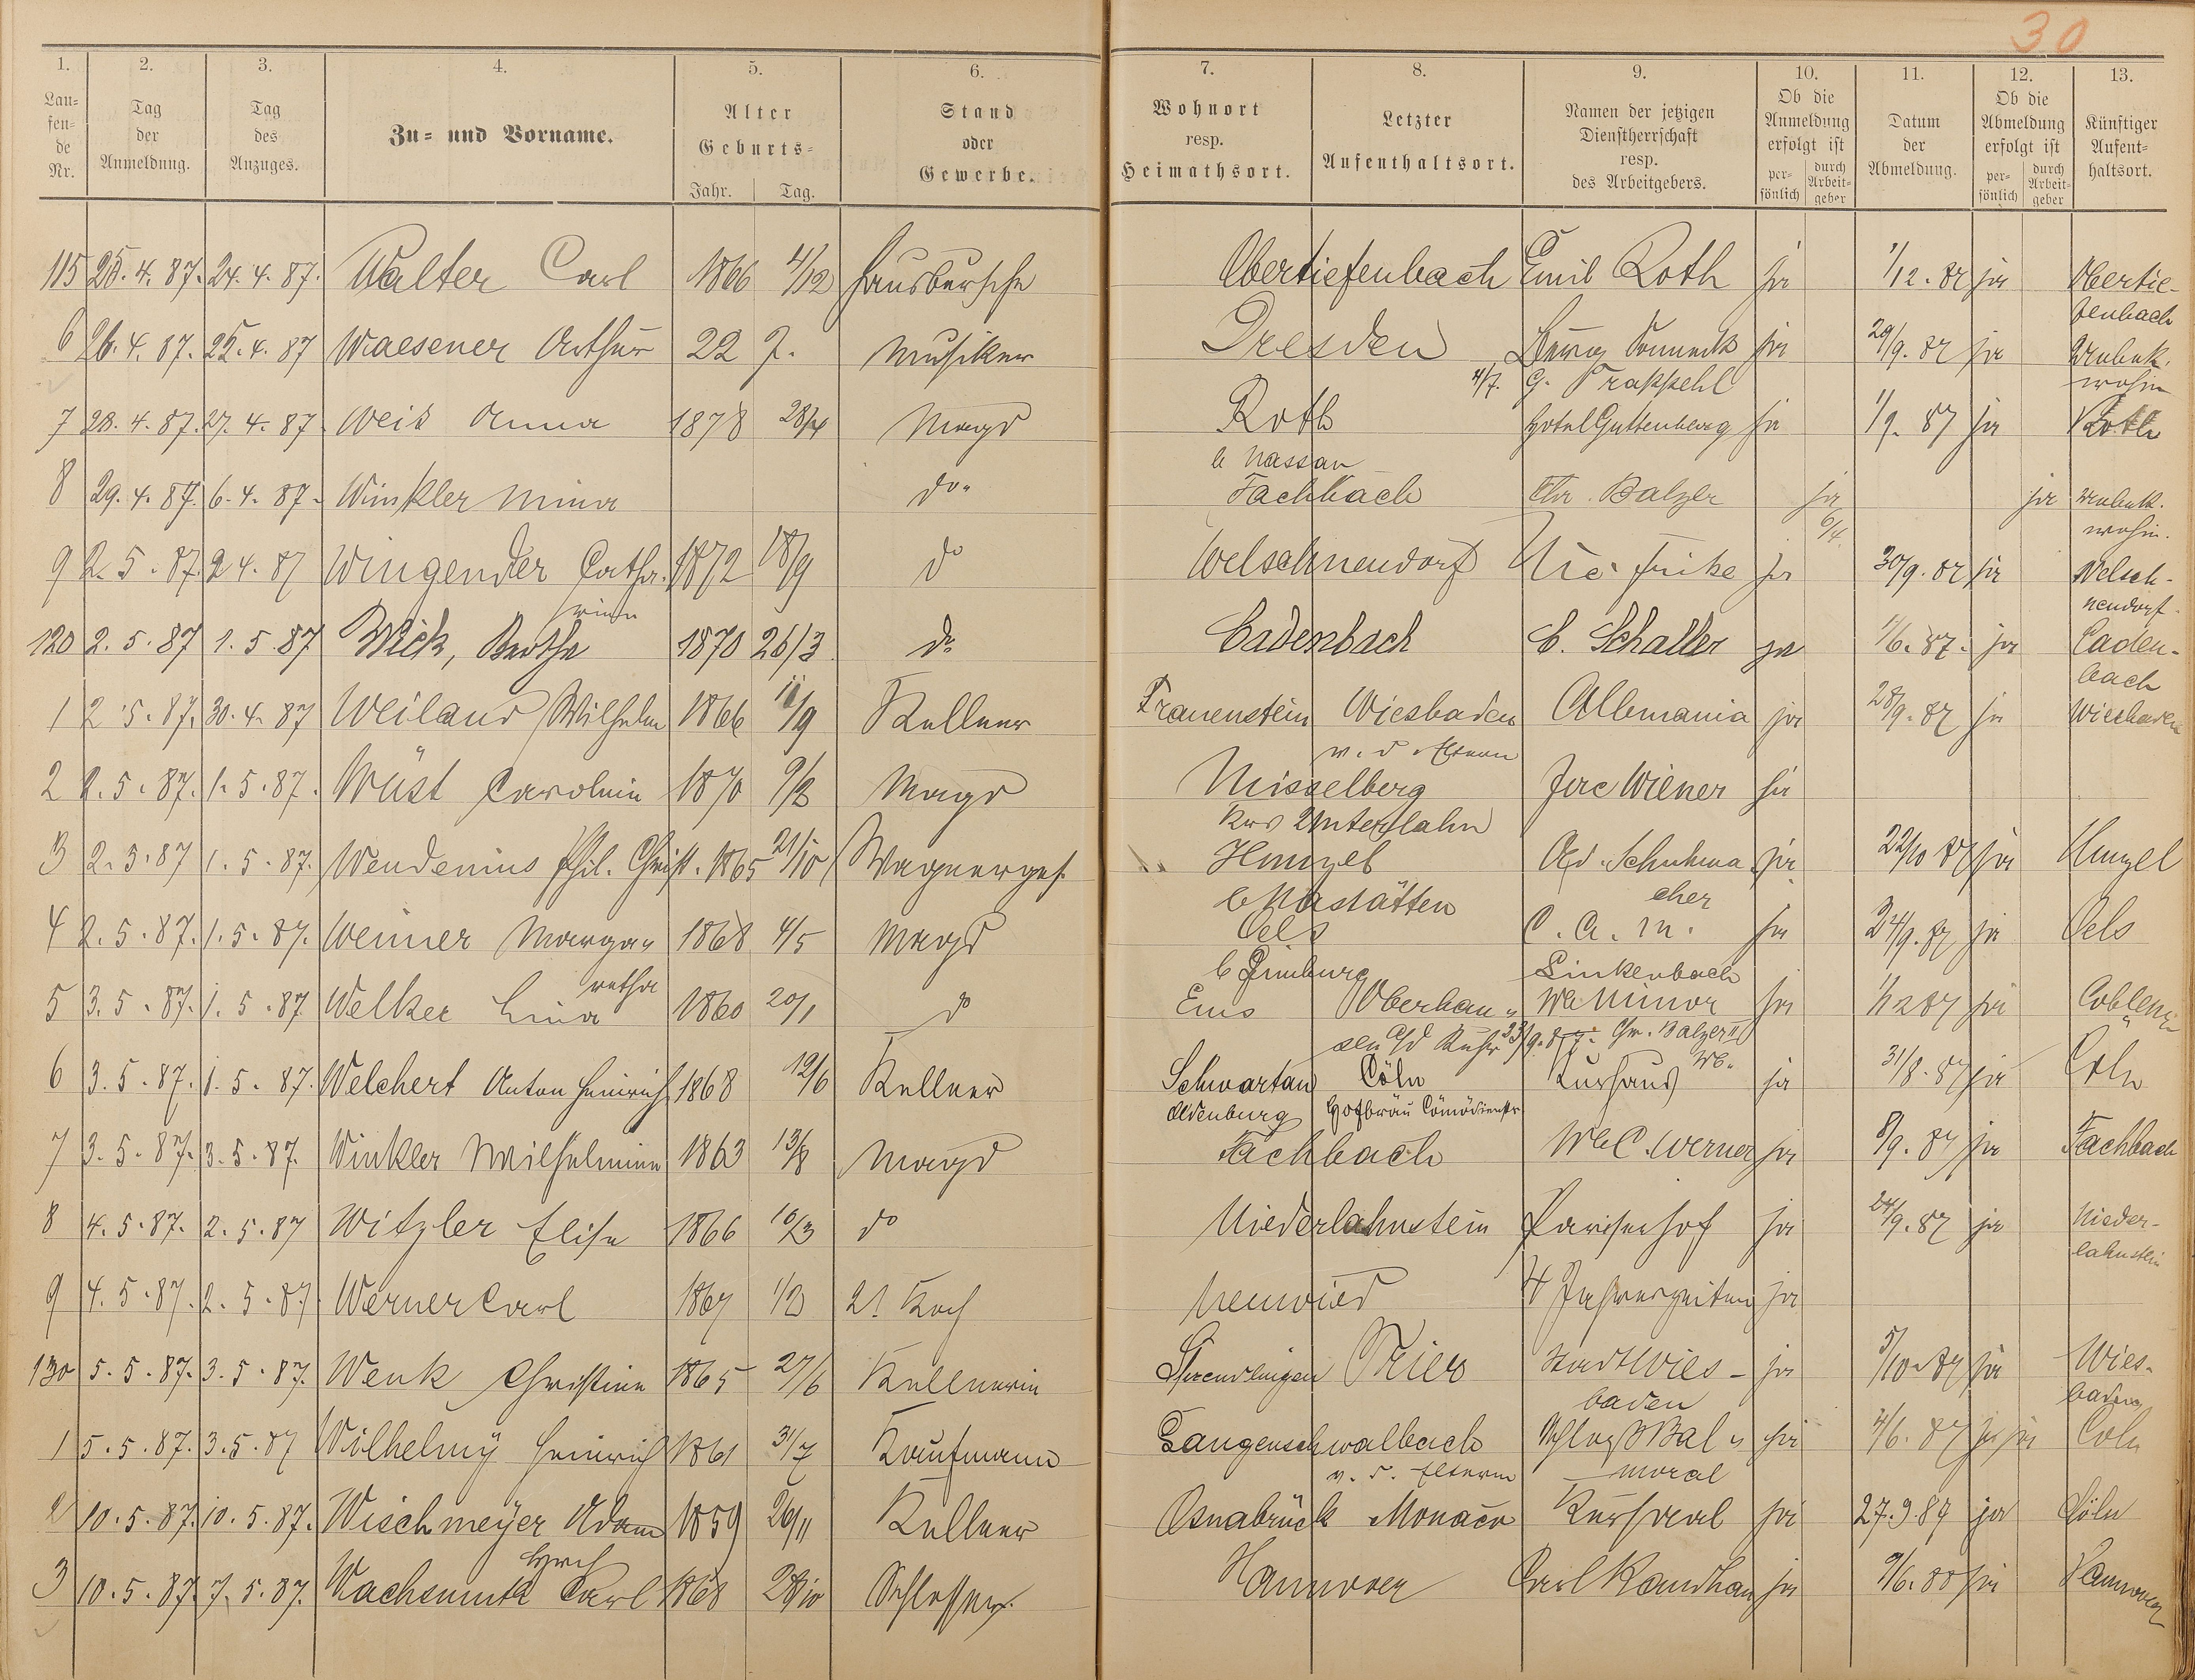 30
1. 2. 3. 4. 5. 6. 7. 8. 9. 10. 11. 12. 13.
Lau-fen-de Nr. Tag der Anmeldung. Tag des Anzuges. Zu- und Vorname. Alter Geburts- Jahr. Tag. Stand oder Gewerbe. Wohnort resp. Heimathsort. Letzter Aufenthaltsort. Namen der jetzigen Dienstherrschaft resp. des Arbeitgebers. Ob die Anmeldung erfolgt ist per-sönlich durch Arbeit-geber Datum der Abmeldung. Ob die Abmeldung erfolgt ist per-sönlich durch Arbeit-geber Künftiger Aufent-haltsort.
115 25. 4. 87. 24. 4. 87. Walter Carl 1866 4/12 Hausbursche Obertiefenbach Emil Roth ja 1/12. 87 ja Obertie-
fenbach
6 26. 4. 87. 25. 4. 87 Waesener Arthur 22 J. Musiker Dresden ja 29/9. 87 ja unbek.
4/7. G. wohin
7 28. 4. 87. 27. 4. 87 Weis Anna 1878 28/4 Magd Roth Hotel Guttenberg ja 1/9. 87 ja Roth
b Nassau
8 29. 4. 87. 6. 4. 87. Winkler Mina do. Fachbach Chr. Balzer ja ja unbek.
6/4. wohin.
9 2. 5. 87. 2 4. 87 Wingender Catha. 1872 18/9 do Welschneudorf ja 30/9. 87 ja Welsch-
rine neudorf.
120 2. 5. 87 1. 5. 87 Wick, Bertha 1870 26/3 do Cadenbach C. Schaller ja 1/6. 87. ja Caden-
bach
1 2. 5. 87. 30. 4. 87 Weiland Wilhelm 1866 11/9 Kellner Frauenstein Wiesbaden Allemania ja 28/9. 87 ja Wiesbaden
v. d. Eltern
2 2. 5. 87. 1. 5. 87. Wüst Caroline 1870 Magd Misselberg Jac Wiener ja
Krs Unterlahn
3 2. 5. 87 1. 5. 87. Wendenius Phil. Christ. 1865 21/10 Wagnerges. Hunzel Ad. Schuhma ja 22/10 87 ja Hunzel
b Nastätten cher
4 2. 5. 87. 1. 5. 87. Weimer Marga= 1868 4/5 Magd Oels C. A. M. ja 24/9. 87 ja Oels
retha b Limburg Linkenbach
5 3. 5. 87. 1. 5. 87 Welker Lina 1860 20/1 do Ems Oberhau= We Minor ja 1/12 87 ja Coblenz
sen a/d Ruhr 23/9. 87. Chr. Balzer II We.
6 3. 5. 87. 1. 5. 87. Welchert Anton Heinrich 1868 12/6 Kellner Schwartau Cöln Kurhaus ja 31/8. 87 ja Coln
Oldenburg Hofbräu Cömödienstr.
7 3. 5. 87. 3. 5. 87. Winkler Wilhelmine 1863 13/8 Magd Fachbach We C. Werner ja 8/9. 87 ja Fachbach
8 4. 5. 87. 2. 5. 87 Witzler Elise 1866 16/3 do Niederlahnstein Pariserhof ja 24/9. 87 ja Nieder-
lahnstein
9 4. 5. 87. 2. 5. 87. Werner Carl 1867 1/3 2t Koch Neuwied 4 Jahreszeiten ja
130 5. 5. 87. 3. 5. 87. Wenk Christine 1865 27/6 Kellnerin Trier Stadt Wies- ja 5/10. 87 ja Wies-
baden baden
1 5. 5. 87. 3. 5. 87 Wilhelmy Heinrich 1861 31/7 Kaufmann Langenschwalbach Schloß Bal= ja 4/6. 87 ja ja Coln
v. d. Eltern moral
2 10. 5. 87. 10. 5. 87. Wischmeyer Adam 1859 26/11 Kellner Osnabrück Monaco Kursaal ja 27. 9. 87 ja Cöln
3 10. 5. 87. 7. 5. 87. Wachsmuth Carl 1868 28/10 Schlosser Hannover Carl ja 9/6. 88 ja Hannover